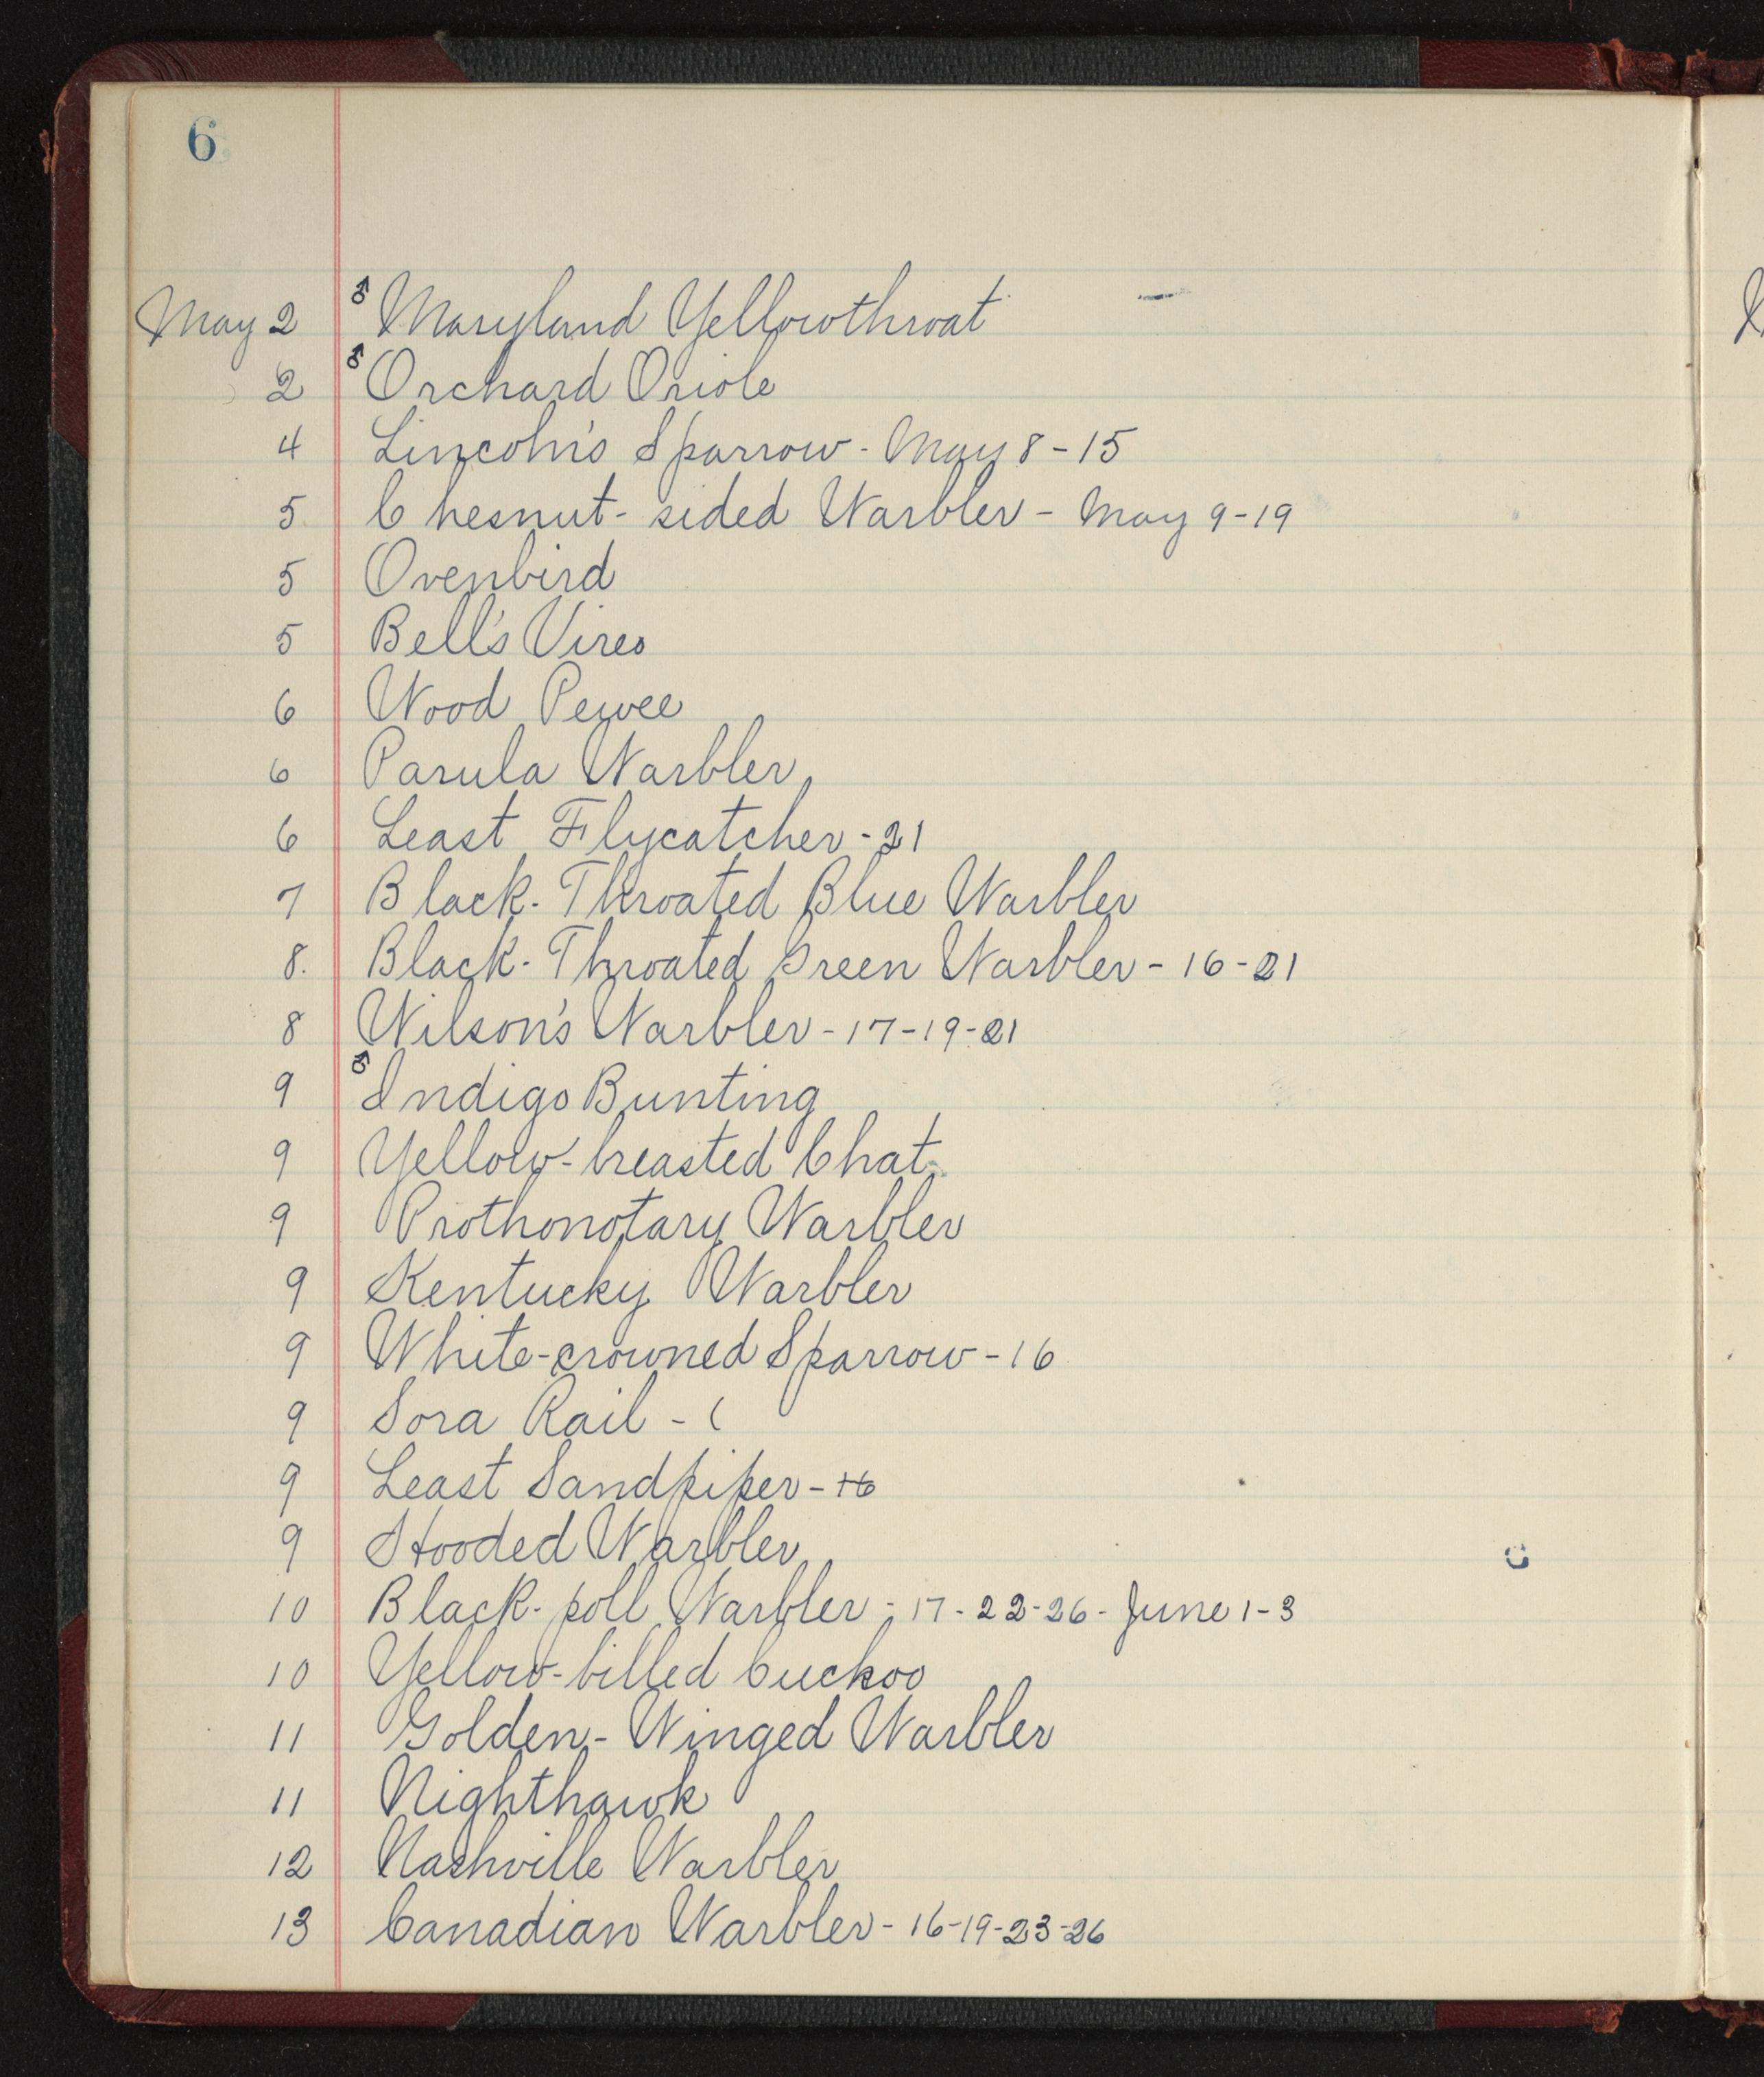 6
May 2 ♂ Maryland Yellowthroat
2 ♂ Orchard Oriole
4 Lincoln's Sparrow - May 8 - 15
5 Chesnut-sided Warbler - May 9-19
5 Ovenbird
5 Bell's Vireo
6 Wood Pewee
6 Parula Warbler
6 Least Flycatcher - 21
7 Black-Throated Blue Warbler
8. Black-Throated Green Warbler - 16-21
8 Wilson's Warbler - 17-19-21
9 ♂ Indigo Bunting
9 Yellow-breasted Chat
9 Prothonotary Warbler
9 Kentucky Warbler
9 White-crowned Sparrow - 16
9 Sora Rail - (
9 Least Sandpiper - 16
9 Hooded Warbler
10 Black-poll Warbler - 17-22-26- June 1-3
10 Yellow-billed Cuckoo
11 Golden-Winged Warbler
11 Nighthawk
12 Nashville Warbler
13 Canadian Warbler - 16-19-23-26